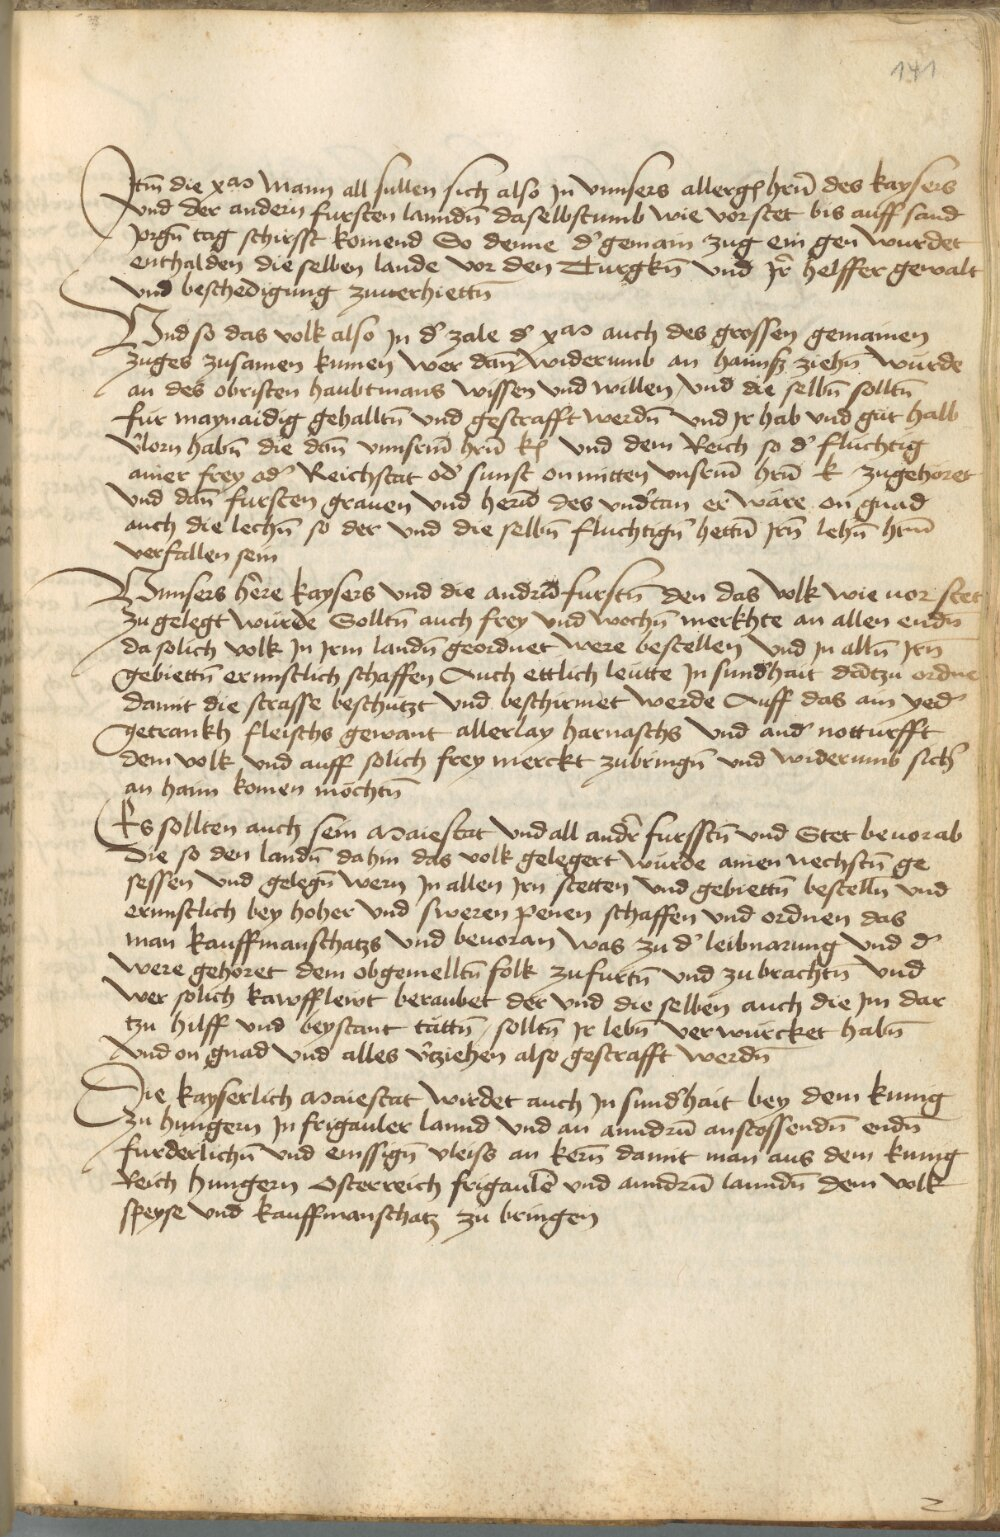 141
Itm̄ die xm Mann all sullen sich also In vnnsers allergl hrn̄ des kaysers
vnd der andern fursten lanndn̄ daselbstumb wie vorstet bis auff sand
Jorgn̄ tag schirsst komend So denne d' gemain zug ein gen wurdet
enthalden die selben lande vor den Turgkn̄ vnd Jr̄ helffer gewalt
vnd beschedigung zuuerhiettn̄
Vnd so das volk also In d' zale d' xm auch des grossen gemainen
zuges zusamen kumen wer dan̄ widerumb an haimß ziehn̄ wurde
an des obristen haubtmans wissen vnd willen / vnd die selbn̄ solltn̄
fur maynaidig gehalltn̄ vnd gestrafft werdn̄ vnd Jr hab vnd gut halb
v'lorn habn̄ die dan̄ vnnserm̄ hrn̄ kl vnd dem Reich so d' fluchtig
ainer frey od' Reichstat od' sunst on mitten vnserm̄ hrn̄ k zugehoret
vnd dan̄ fursten grauen vnd hern̄ des vnd'tan er wäre on gnad
auch die lechn̄ so der vnd die selbn̄ fluchtign̄ hettn̄ Jrn̄ lehn̄ hrn̄
verfallen sein
Vnnsers h'ere kaysers vnd die andrn̄ furstn̄ den das volk wie uor stet
zu gelegt wurde Solltn̄ auch frey vnd wochn̄ merkhte an allen endn̄
da solich volk In Jrm landn̄ geordnet were bestellen vnd In alln̄ Jrn
gebiettn̄ ernnstlich schaffen Auch ettlich leutte In sund'hait dartzu ordne
damit die strasse beschutzt vnd beschirmet werde Auff das ain yed'
getrankh fleischs gewant allerlay harnaschs vnd and' notturfft
dem volk vnd auff solich frey merckt zubringn̄ vnd widerumb sich'
an haim komen mochtn̄
Es sollten auch sein Maiestat vnd all andr̄ furfstn̄ vnd Stet beuorab
die so den landn̄ dahin das volk gelegert wurde ainen nechstn̄ ge
sessen vnd gelegn̄ wern In allen Jrn stetten vnd gebiettn̄ bestelln̄ vnd
ernnstlich bey hoher vnd sweren penen schaffen vnd ordnen das
man kauffmanschatzs vnd beuoran was zu d' leibnarung vnd d'
were gehoret dem obgemelltn̄ folk zufurtn̄ vnd zu brachtn̄ vnd
wer solich kawfflewt beraubet der vnd die selben auch die Im dar
tzu hilff vnd beystant tättn̄ / solltn̄ Jr lebn̄ verwurcket habn̄
vnd on gnad vnd alles v'tziehen also gestrafft werdn̄
Die kayserlich Maiestat wirdet auch In sund'hait bey dem kunig
zu hungern In frigauler lannd vnd an anndrn̄ anstossendn̄ endn̄
furderlichn̄ vnd emssign̄ vleiss an kern̄ damit man aus dem kunig
Reich hungern Osterreich frigaul̄ vnd anndrn̄ lanndn̄ dem volk
speyse vnd kauffmanschatz zu bringen
2